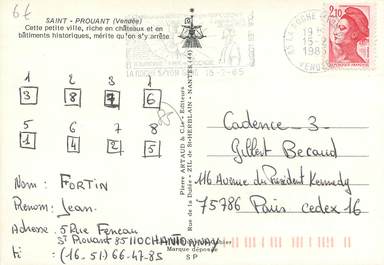 6€
SAINT - PROUANT (Vendée)
Cette petite ville, riche en châteaux et en
bâtiments historiques, mérite qu'on s'y arrête.
LA ROCHE S/YON 15-2-85
85 LA ROCHE
15-2
1985
VENDEE
2,10
1 2 3 4
3 8 7 6
5 6 7 8
1 4 2 5
85
Pierre ARTAUD & Cie - Editeurs
Rue de la Dutée - ZIL de St-HERBLAIN - NANTES (44)
Cadence - 3 -
Gilbert Becaud
116 Avenue du Président Kennedy
75786 Paris cedex 16
Nom : FORTIN
Prénom : Jean.
Adresse : 5 Rue
St Prouant 85110 CHANTONNAY
(16-51) 66-47-85
Marque déposée
S P